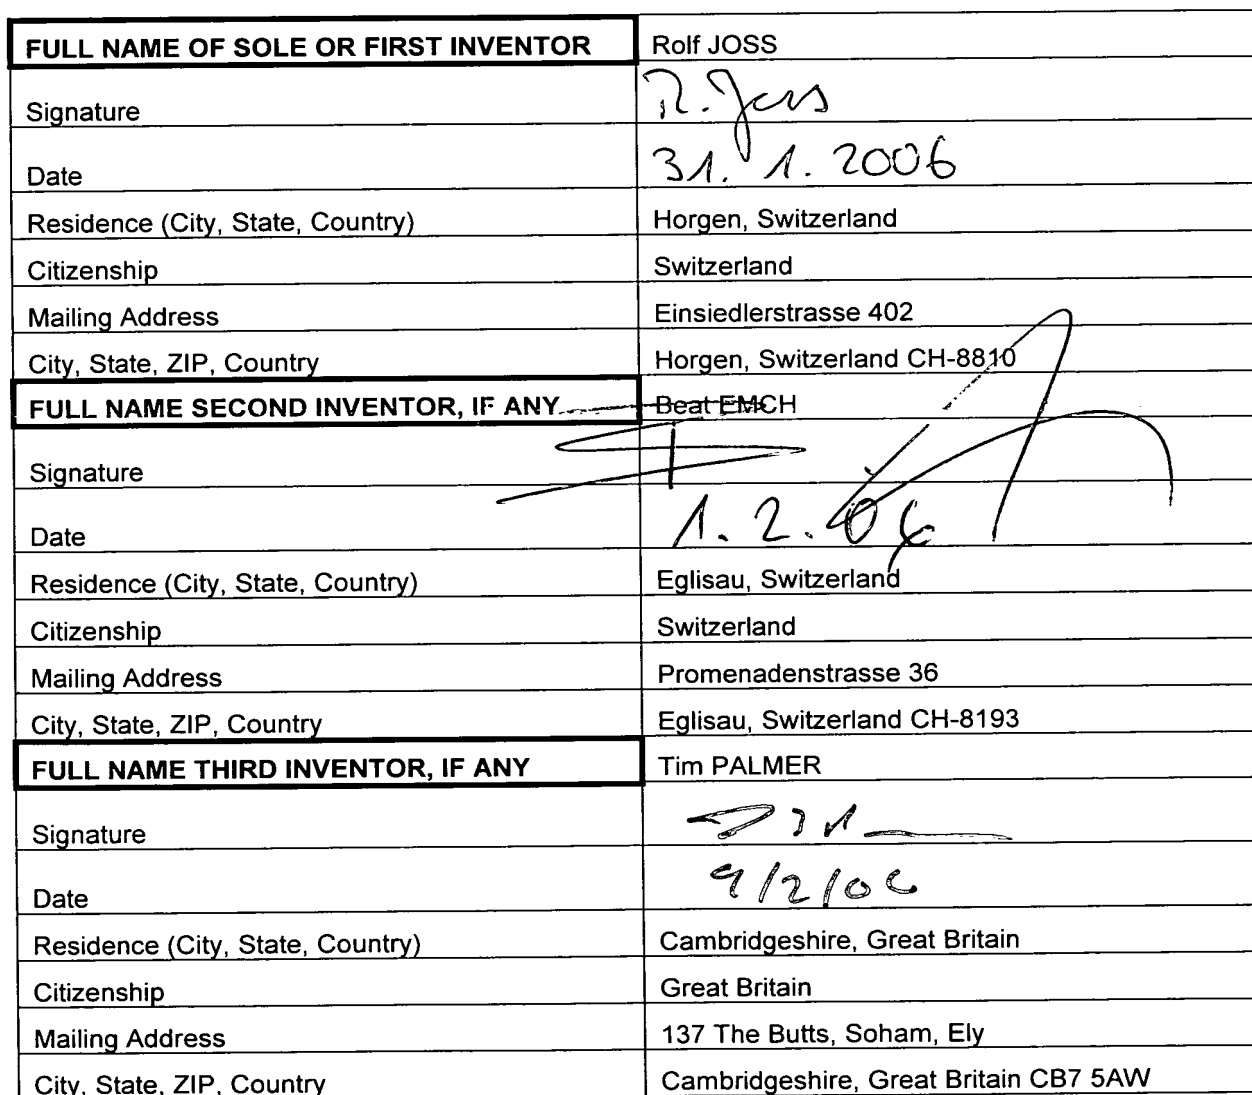 FULL NAME OF SOLE OR FIRST INVENTOR Rolf JOSS
Signature R. Joss
Date 31. 1. 2006
Residence (City, State, Country) Horgen, Switzerland
Citizenship Switzerland
Mailing Address Einsiedlerstrasse 402
City, State, ZIP, Country Horgen, Switzerland CH-8810
FULL NAME SECOND INVENTOR, IF ANY Beat EMCH
Signature
Date 1. 2. 06
Residence (City, State, Country) Eglisau, Switzerland
Citizenship Switzerland
Mailing Address Promenadenstrasse 36
City, State, ZIP, Country Eglisau, Switzerland CH-8193
FULL NAME THIRD INVENTOR, IF ANY Tim PALMER
Signature
Date 9/2/06
Residence (City, State, Country) Cambridgeshire, Great Britain
Citizenship Great Britain
Mailing Address 137 The Butts, Soham, Ely
City, State, ZIP, Country Cambridgeshire, Great Britain CB7 5AW